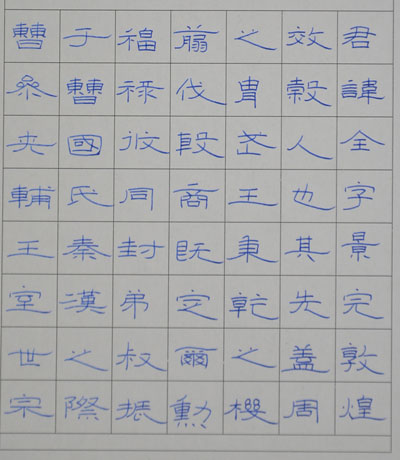 君諱全字景完敦煌
效穀人也其先盖周
之胄武王秉乾之機
翦伐殷商既定爾勳
福禄攸同封弟叔振
于曹國氏秦漢之際
曹參夾輔王室世宗